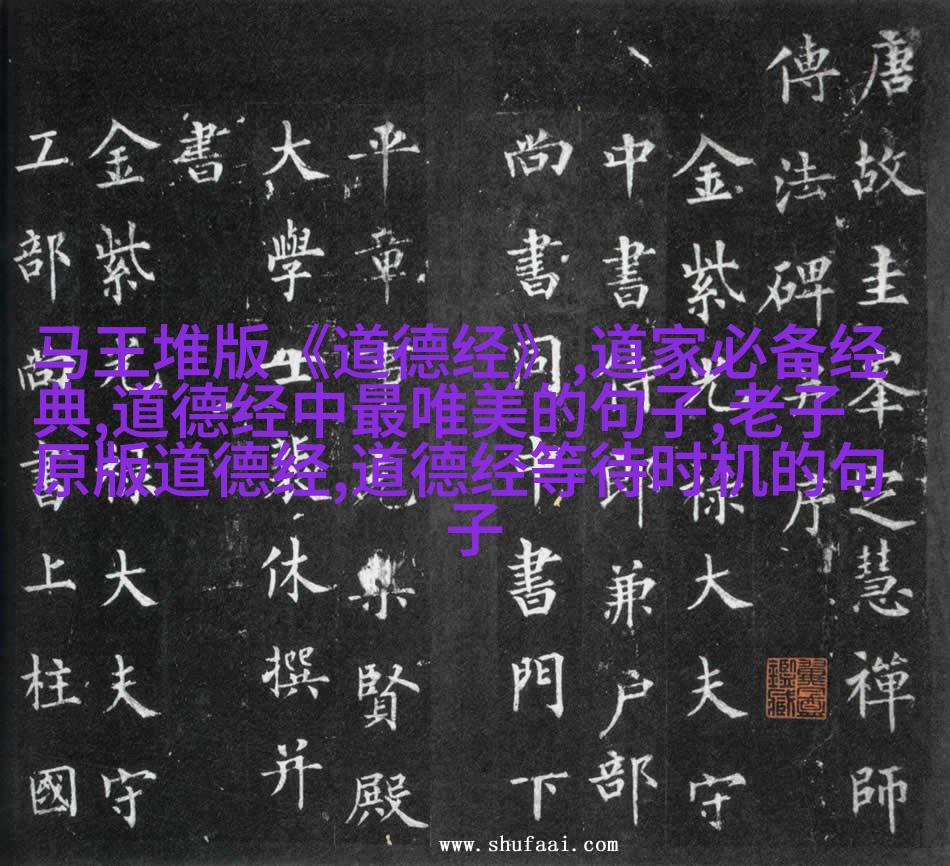 马王堆版《道德经》,道家必备经
典,道德经中最唯美的句子,老子
原版道德经,道德经等待时机的句
子
唐故圭峯定慧禪師
傳法碑并序
金紫光祿大夫守
中書侍郎兼户部
尚書同中書門下
平章事充集賢殿
大學士裴休撰并
書
金紫光祿大夫守
工部尚書上柱國
www.shufaai.com